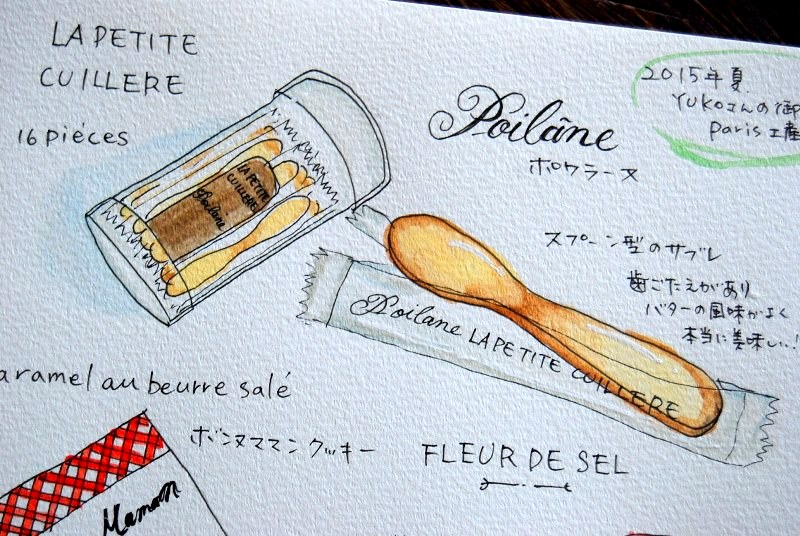 LA PETITE
CUILLERE
16 pièces
LA PETITE
CUILLERE
Poilâne
Poilâne
ポワラーヌ
2015年夏
YUKOさんの御
Paris土産
スプーン型のサブレ
歯ごたえがあり
バターの風味がよく
本当に美味しい..!
Poilane LA PETITE CUILLERE
aramel au beurre salé
ボンヌママンクッキー
FLEUR DE SEL
Maman